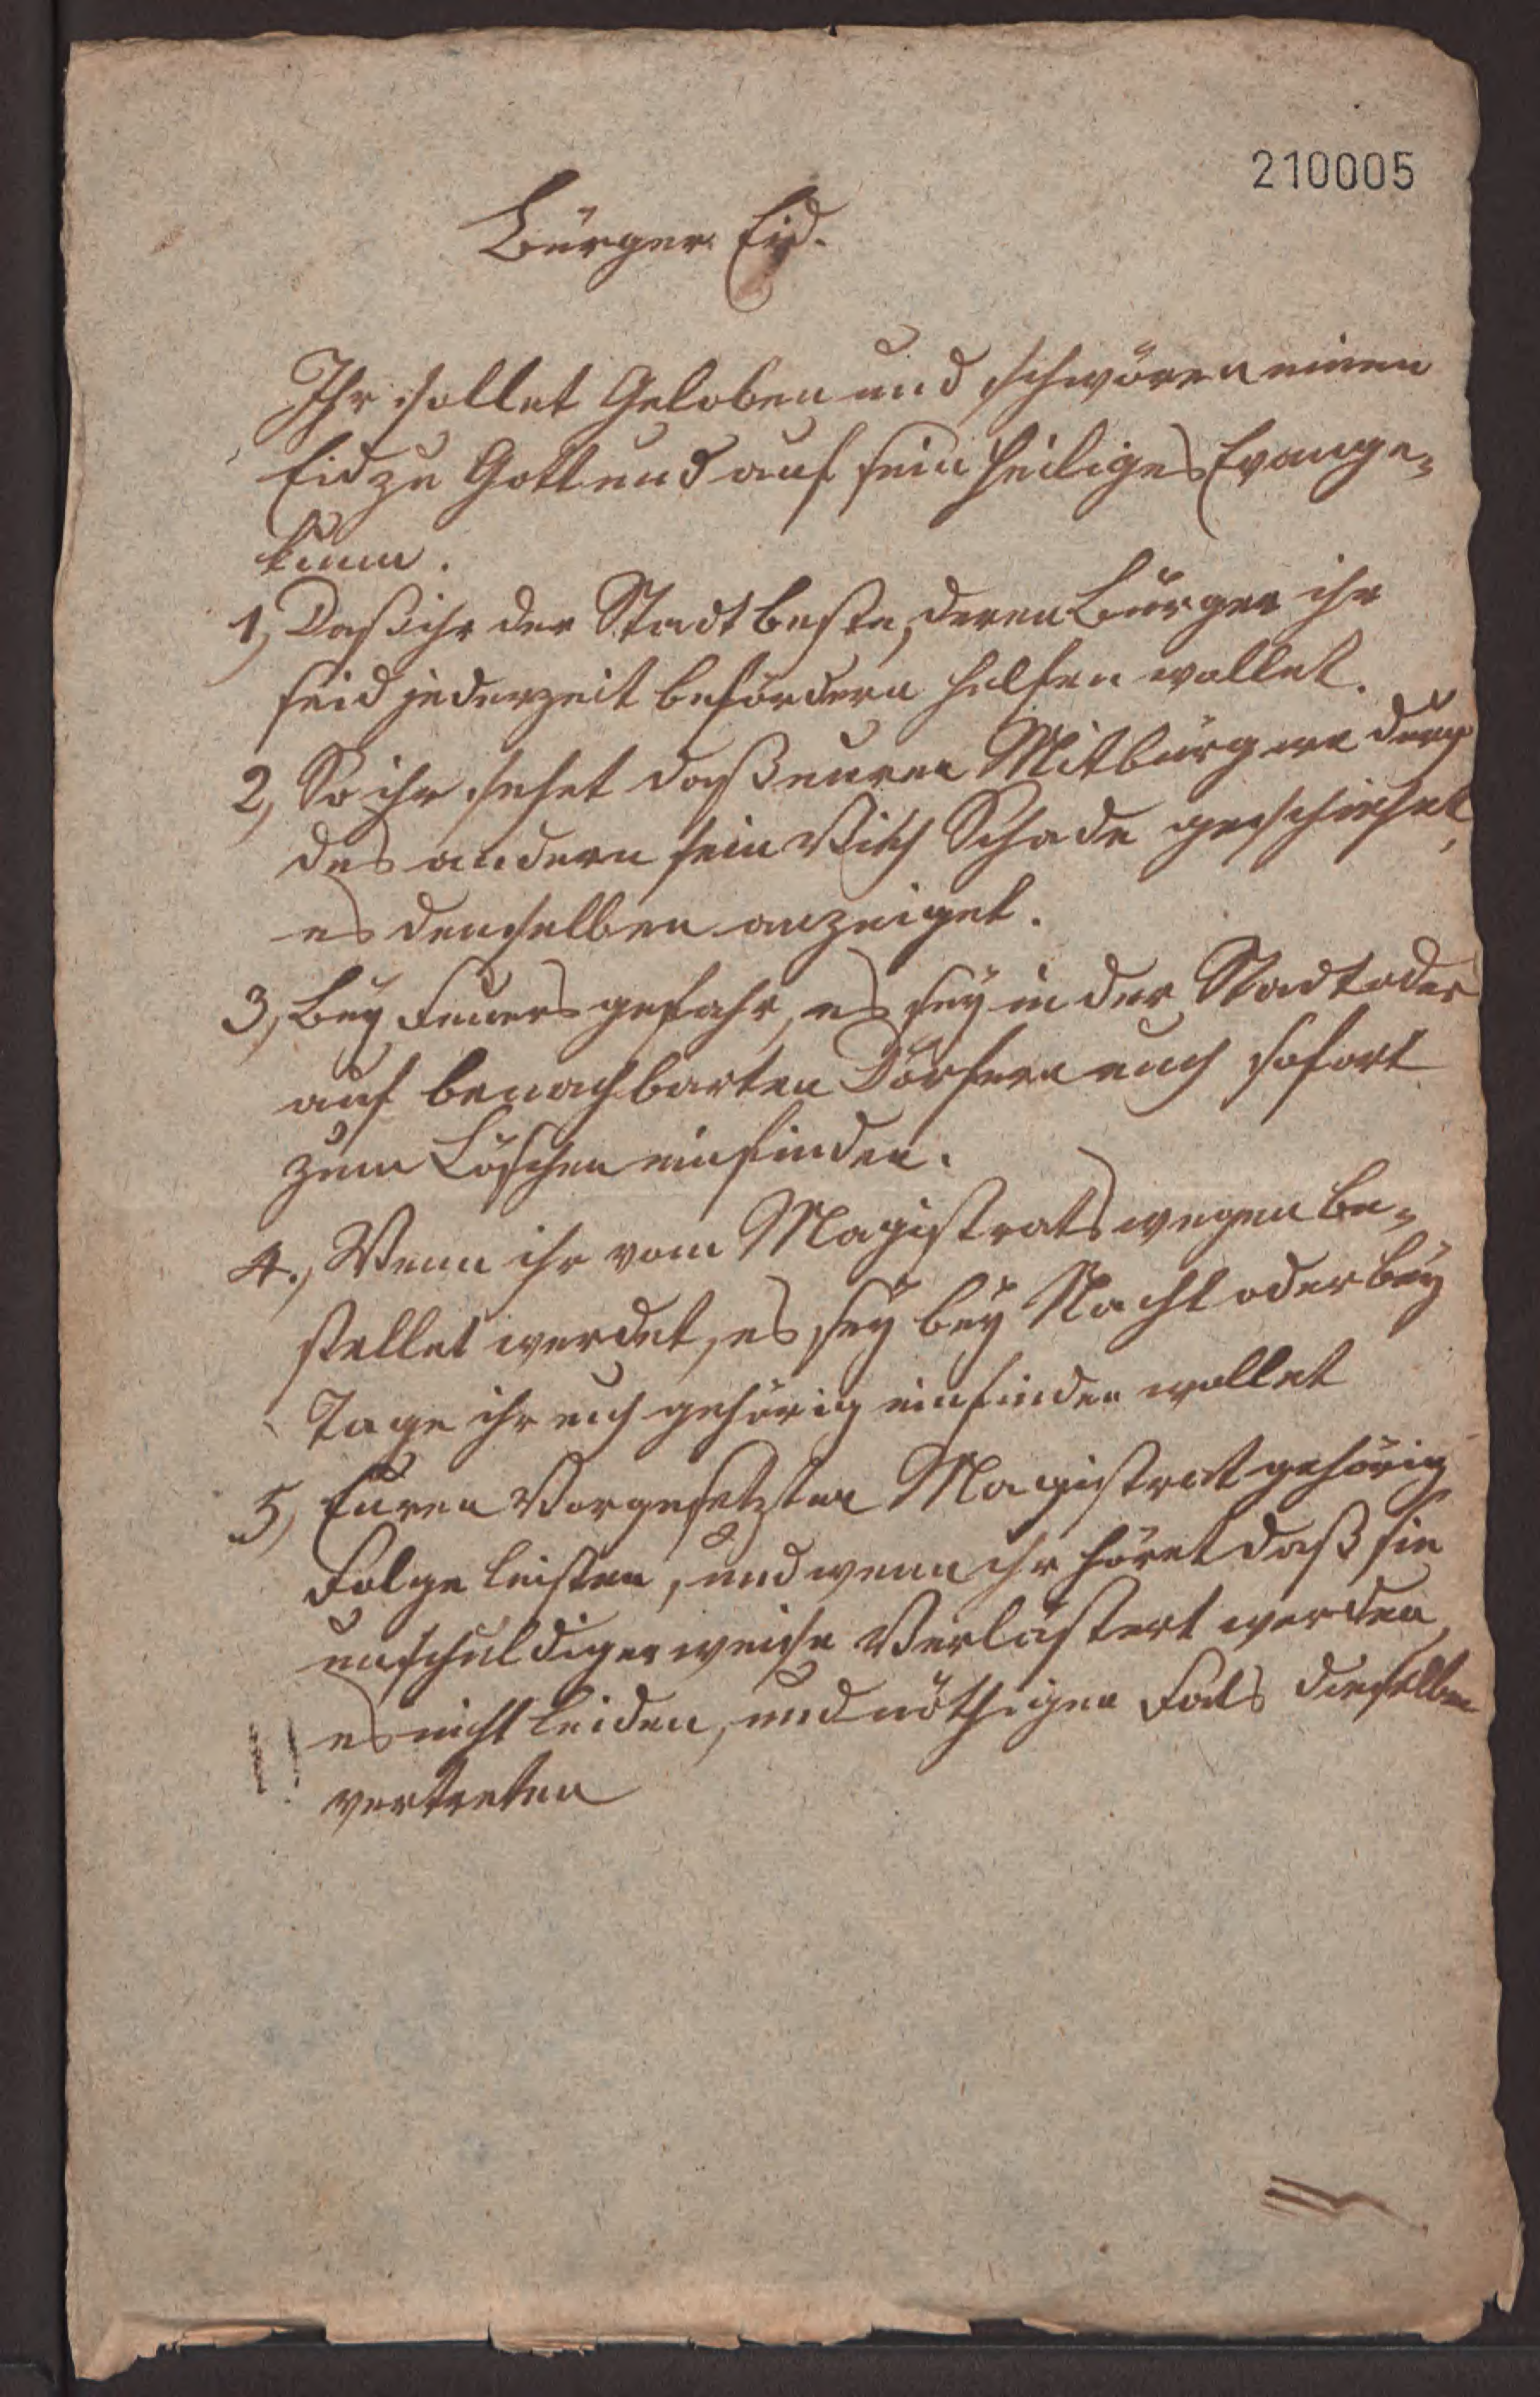 210005
Bürger Eid.
Ihr sollet Geloben und schwören einen
Eid zu Gott und auf sein heiliges Evange=
lium.
1, Daß ihr der Stadt beste, deren Bürger ihr
seid jederzeit befördern helfen wollet.
2, So ihr sehet daß euren Mitbürgern durch
des andern sein Vieh Schade geschiehet,
es demselben anzeiget.
3, Bey Feuers gefahr, es sey in der Stadt oder
auf benachbarten Dörfern euch sofort
zum Löschen einfinden.
4., Wenn ihr vom Magistrats wegen be=
stellet werdet, es sey bey Nacht oder bey
Tage ihr euch gehörig einfinden wollet
5, Euren Vorgesetzten Magistrat gehörig
Folge leisten, und wenn ihr höret daß sie
unschuldiger weise Verlästert werden,
es nicht leiden, und nöthigen Fals dieselben
vertreten